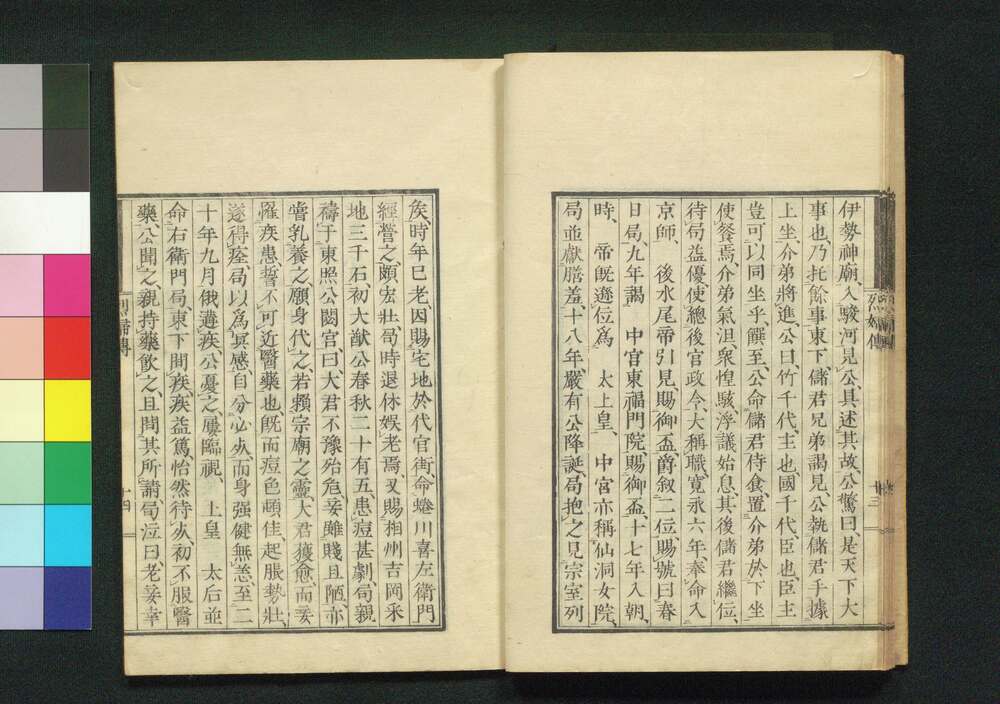 烈婦傳
十三
伊勢神廟、入駿河見公、具述其故、公驚曰、是天下大
事也、乃托餘事東下、儲君兄弟謁見、公執儲君手據
上坐、介弟將進、公曰、竹千代、主也、國千代、臣也、臣主
豈可以同坐乎、饌至、公命儲君侍食、置介弟於下坐
使餐焉、介弟氣沮、衆惶駭、浮議始息、其後儲君繼位、
待局益優、使總後官政令、大稱職、寛永六年、奉命入
京師、　後水尾帝引見、賜御盃爵叙二位、賜號曰春
日局、九年謁　中官東福門院、賜御盃、十七年入朝、
時、　帝既遜位爲　太上皇、　中宮亦稱仙洞女院、
局並獻膳羞、十八年、嚴有公降誕、局抱之見宗室列
矦、時年已老、因賜宅地於代官街、命蜷川喜左衛門
經營之、頗宏壯、局時退休娯老焉、又賜相州吉岡采
地三千石、初大猷公春秋二十有五、患痘甚劇、局親
禱于東照公閟宮曰、大君不豫殆危、妾雖賤且陋、亦
嘗乳養之、願身代之、若頼宗廟之靈、大君獲愈、而妾
罹疾患、誓不可近醫藥也、既而痘色頗佳、起脹勢壯、
遂得痊、局以爲冥感、自分必死、而身强健無恙、至二
十年九月俄遘疾、公憂之、屢臨視、　上皇　太后並
命右衛門局東下問疾、疾益篤、怡然待死、初不服醫
藥、公聞之、親持藥飮之、且問其所請、局泣曰、老妾幸
烈婦傳
十四